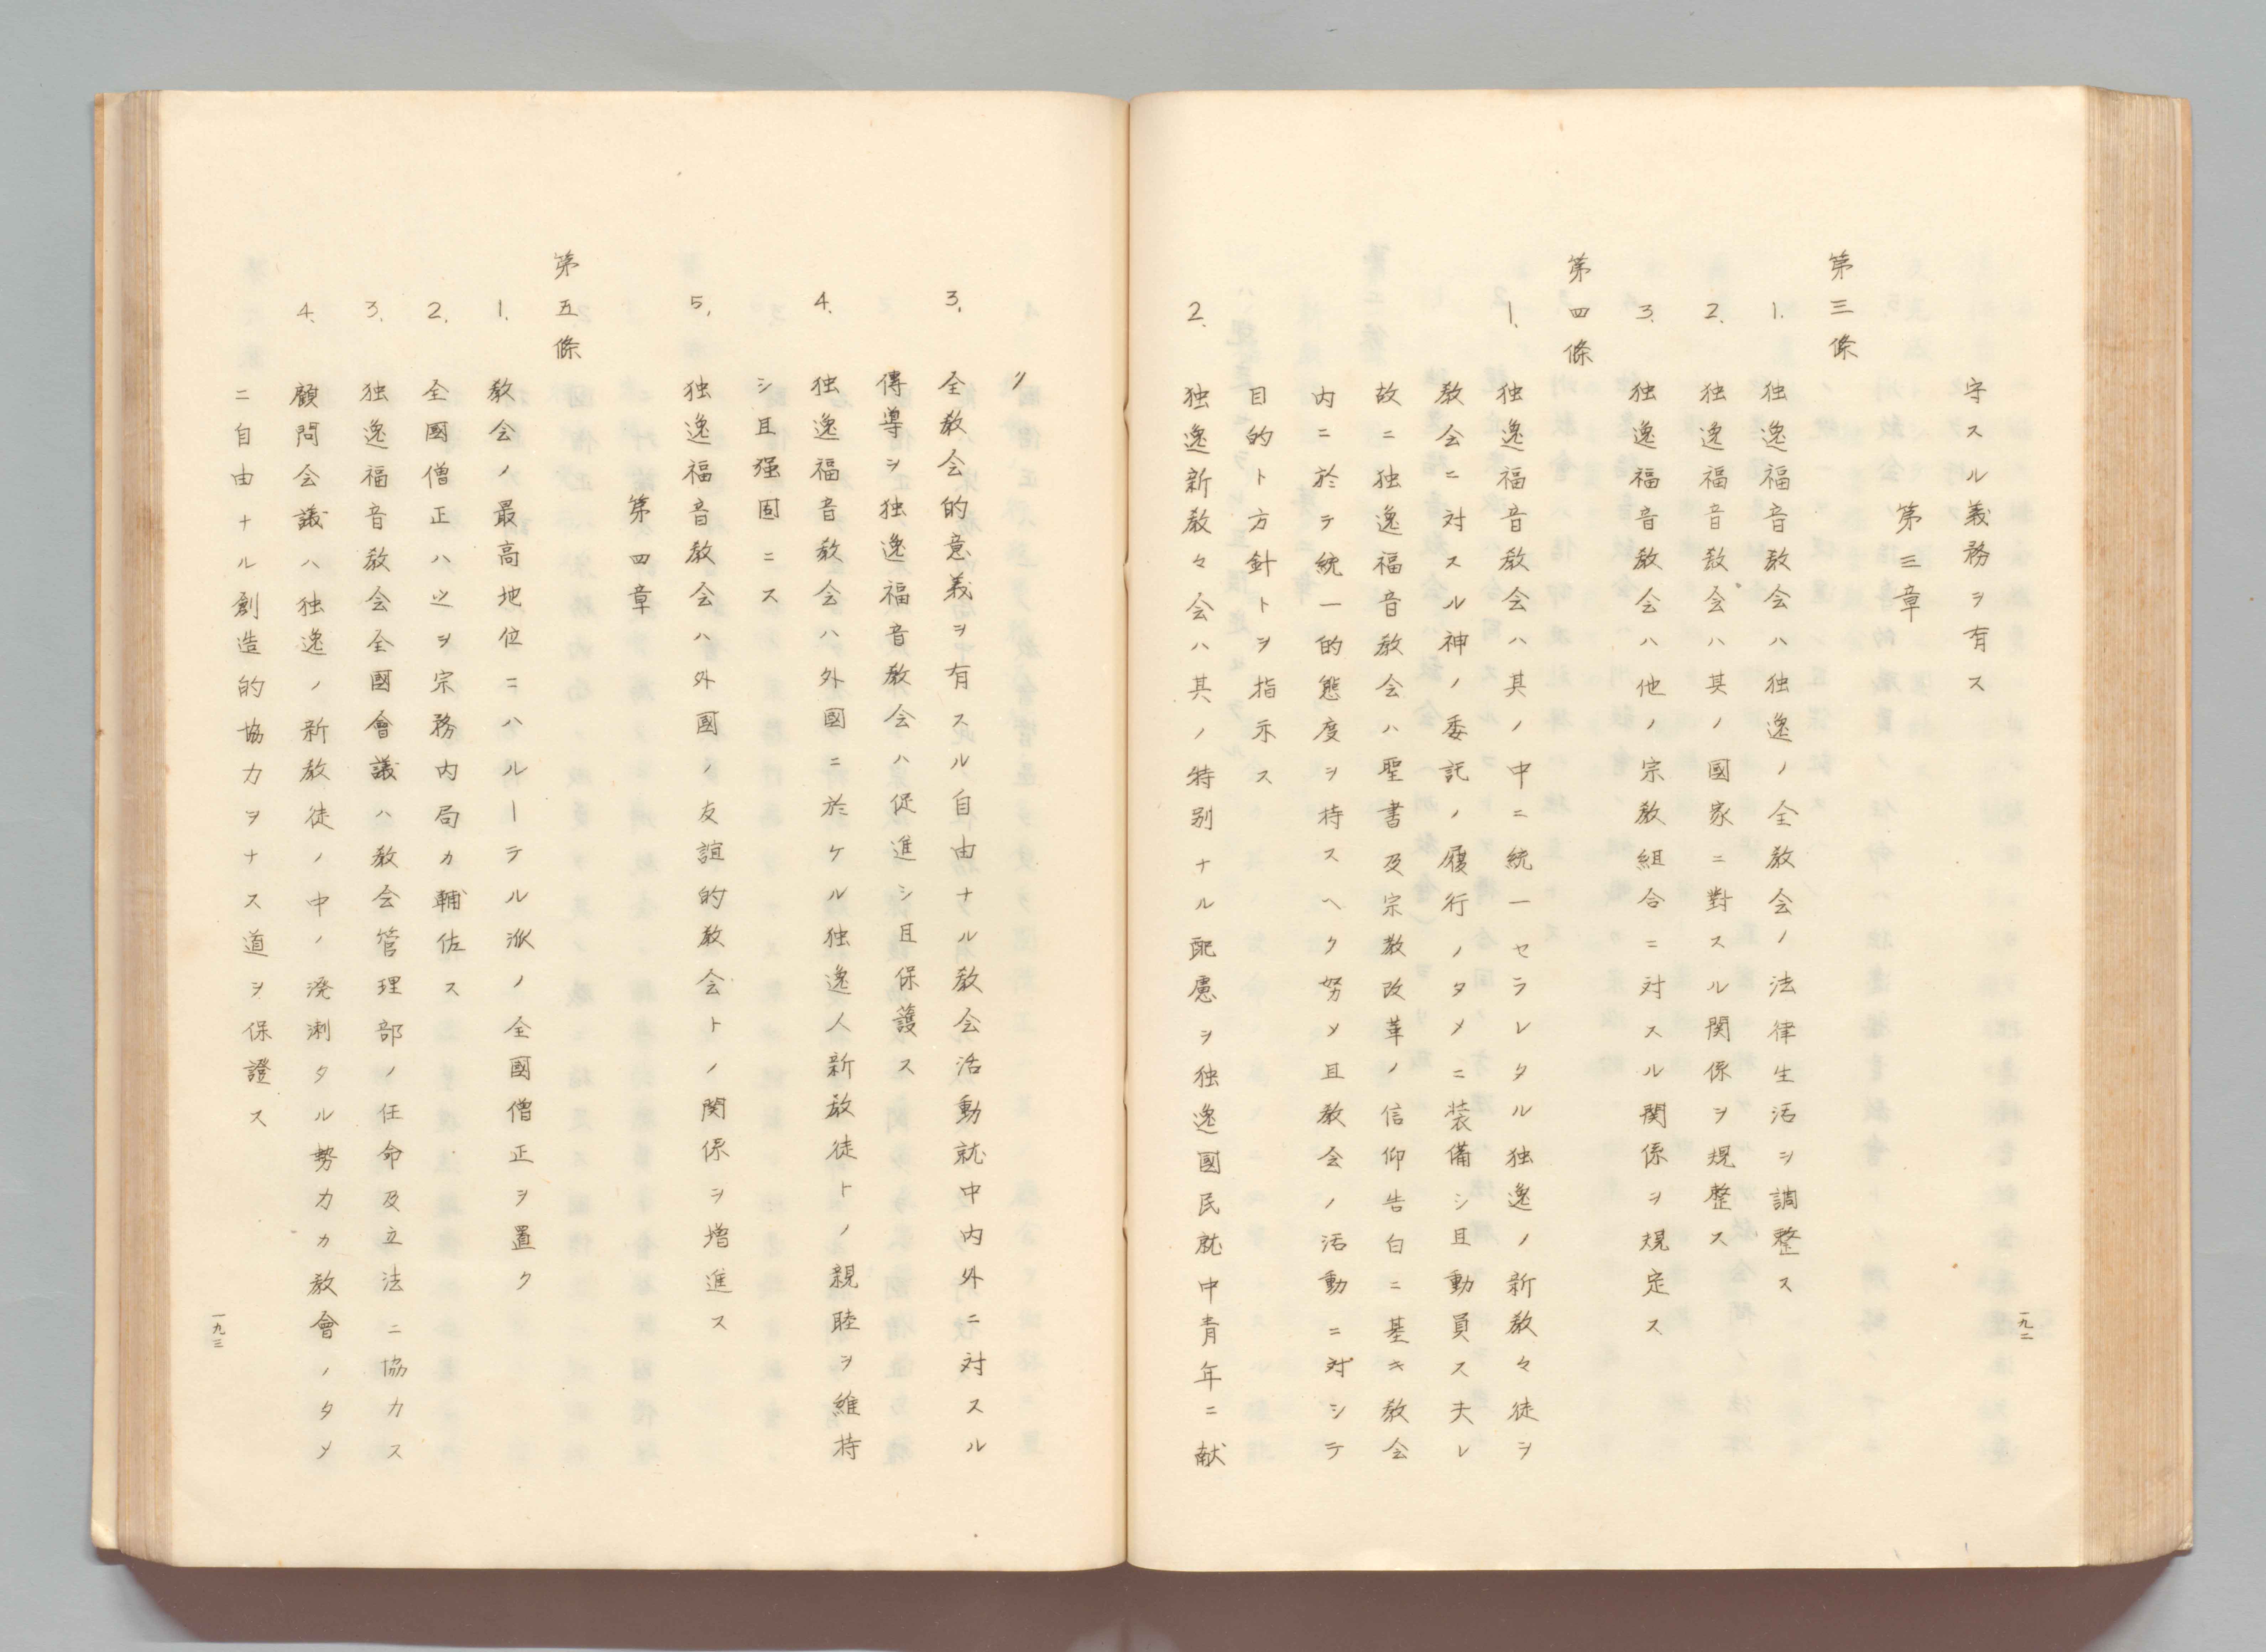 守スル義務ヲ有ス
第三章
第三條
1. 独逸福音教会ハ独逸ノ全教会ノ法律生活ヲ調整ス
2. 独逸福音教会ハ其ノ國家ニ對スル関係ヲ規整ス
3. 独逸福音教会ハ他ノ宗教組合ニ対スル関係ヲ規定ス
第四條
1. 独逸福音教会ハ其ノ中ニ統一セラレタル独逸ノ新教々徒ヲ
教会ニ対スル神ノ委託ノ履行ノタメニ装備シ且動員ス夫レ
故ニ独逸福音教会ハ聖書及宗教改革ノ信仰告白ニ基キ教会
内ニ於テ統一的態度ヲ持スヘク努メ且教会ノ活動ニ対シテ
目的ト方針トヲ指示ス
2. 独逸新教々会ハ其ノ特別ナル配慮ヲ独逸國民就中青年ニ献
一九二
ク
3. 全教会的意義ヲ有スル自由ナル教会活動就中内外ニ対スル
傳導ヲ独逸福音教会ハ促進シ且保護ス
4. 独逸福音教会ハ外國ニ於ケル独逸人新教徒トノ親睦ヲ維持
シ且强固ニス
5. 独逸福音教会ハ外國ノ友誼的教会トノ関係ヲ増進ス
第四章
第五條
1. 教会ノ最高地位ニハルーテル派ノ全國僧正ヲ置ク
2. 全國僧正ハ之ヲ宗務内局カ輔佐ス
3. 独逸福音教会全國會議ハ教会管理部ノ任命及立法ニ協力ス
4. 顧問会議ハ独逸ノ新教徒ノ中ノ溌溂タル勢力カ教會ノタメ
ニ自由ナル創造的協力ヲナス道ヲ保證ス
一九三